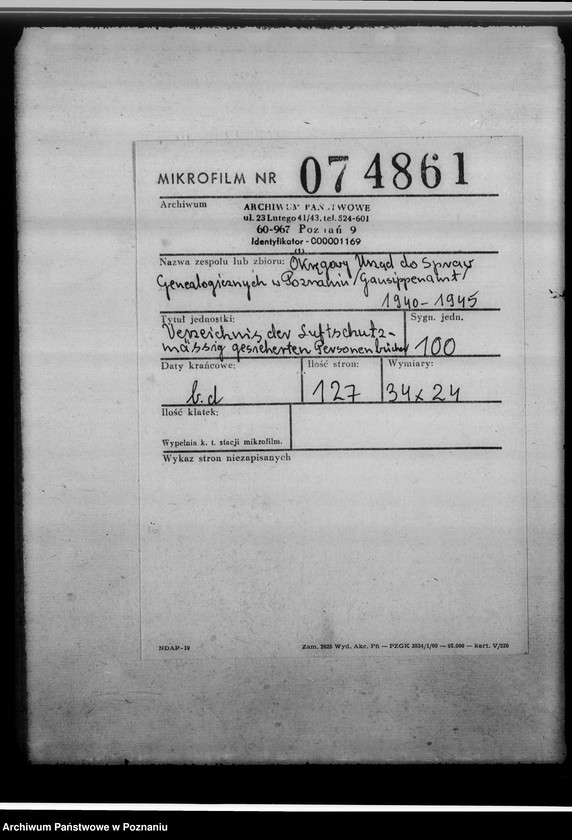 MIKROFILM NR 074861
Archiwum
ARCHIWUM PAŃSTWOWE
ul. 23 Lutego 41/43, tel. 524-601
60-967 Poznań 9
Identyfikator - 000001169
(1)
Nazwa zespołu lub zbioru: Okręgowy Urząd do Spraw
Genealogicznych w Poznaniu /Gausippenamt/
1940-1945
Tytuł jednostki: Sygn. jedn.
Verzeichnis der Luftschutz-
mässig gesicherten Personenbücher 100
Daty krańcowe: Ilość stron: Wymiary:
b.d 127 34x24
Ilość klatek:
Wypełnia k. t. stacji mikrofilm.
Wykaz stron niezapisanych
NDAP-10 Zam. 2625 Wyd. Akc. Pń — PZGK 3834/1/80 — 62.000 — kart. V/220
Archiwum Państwowe w Poznaniu